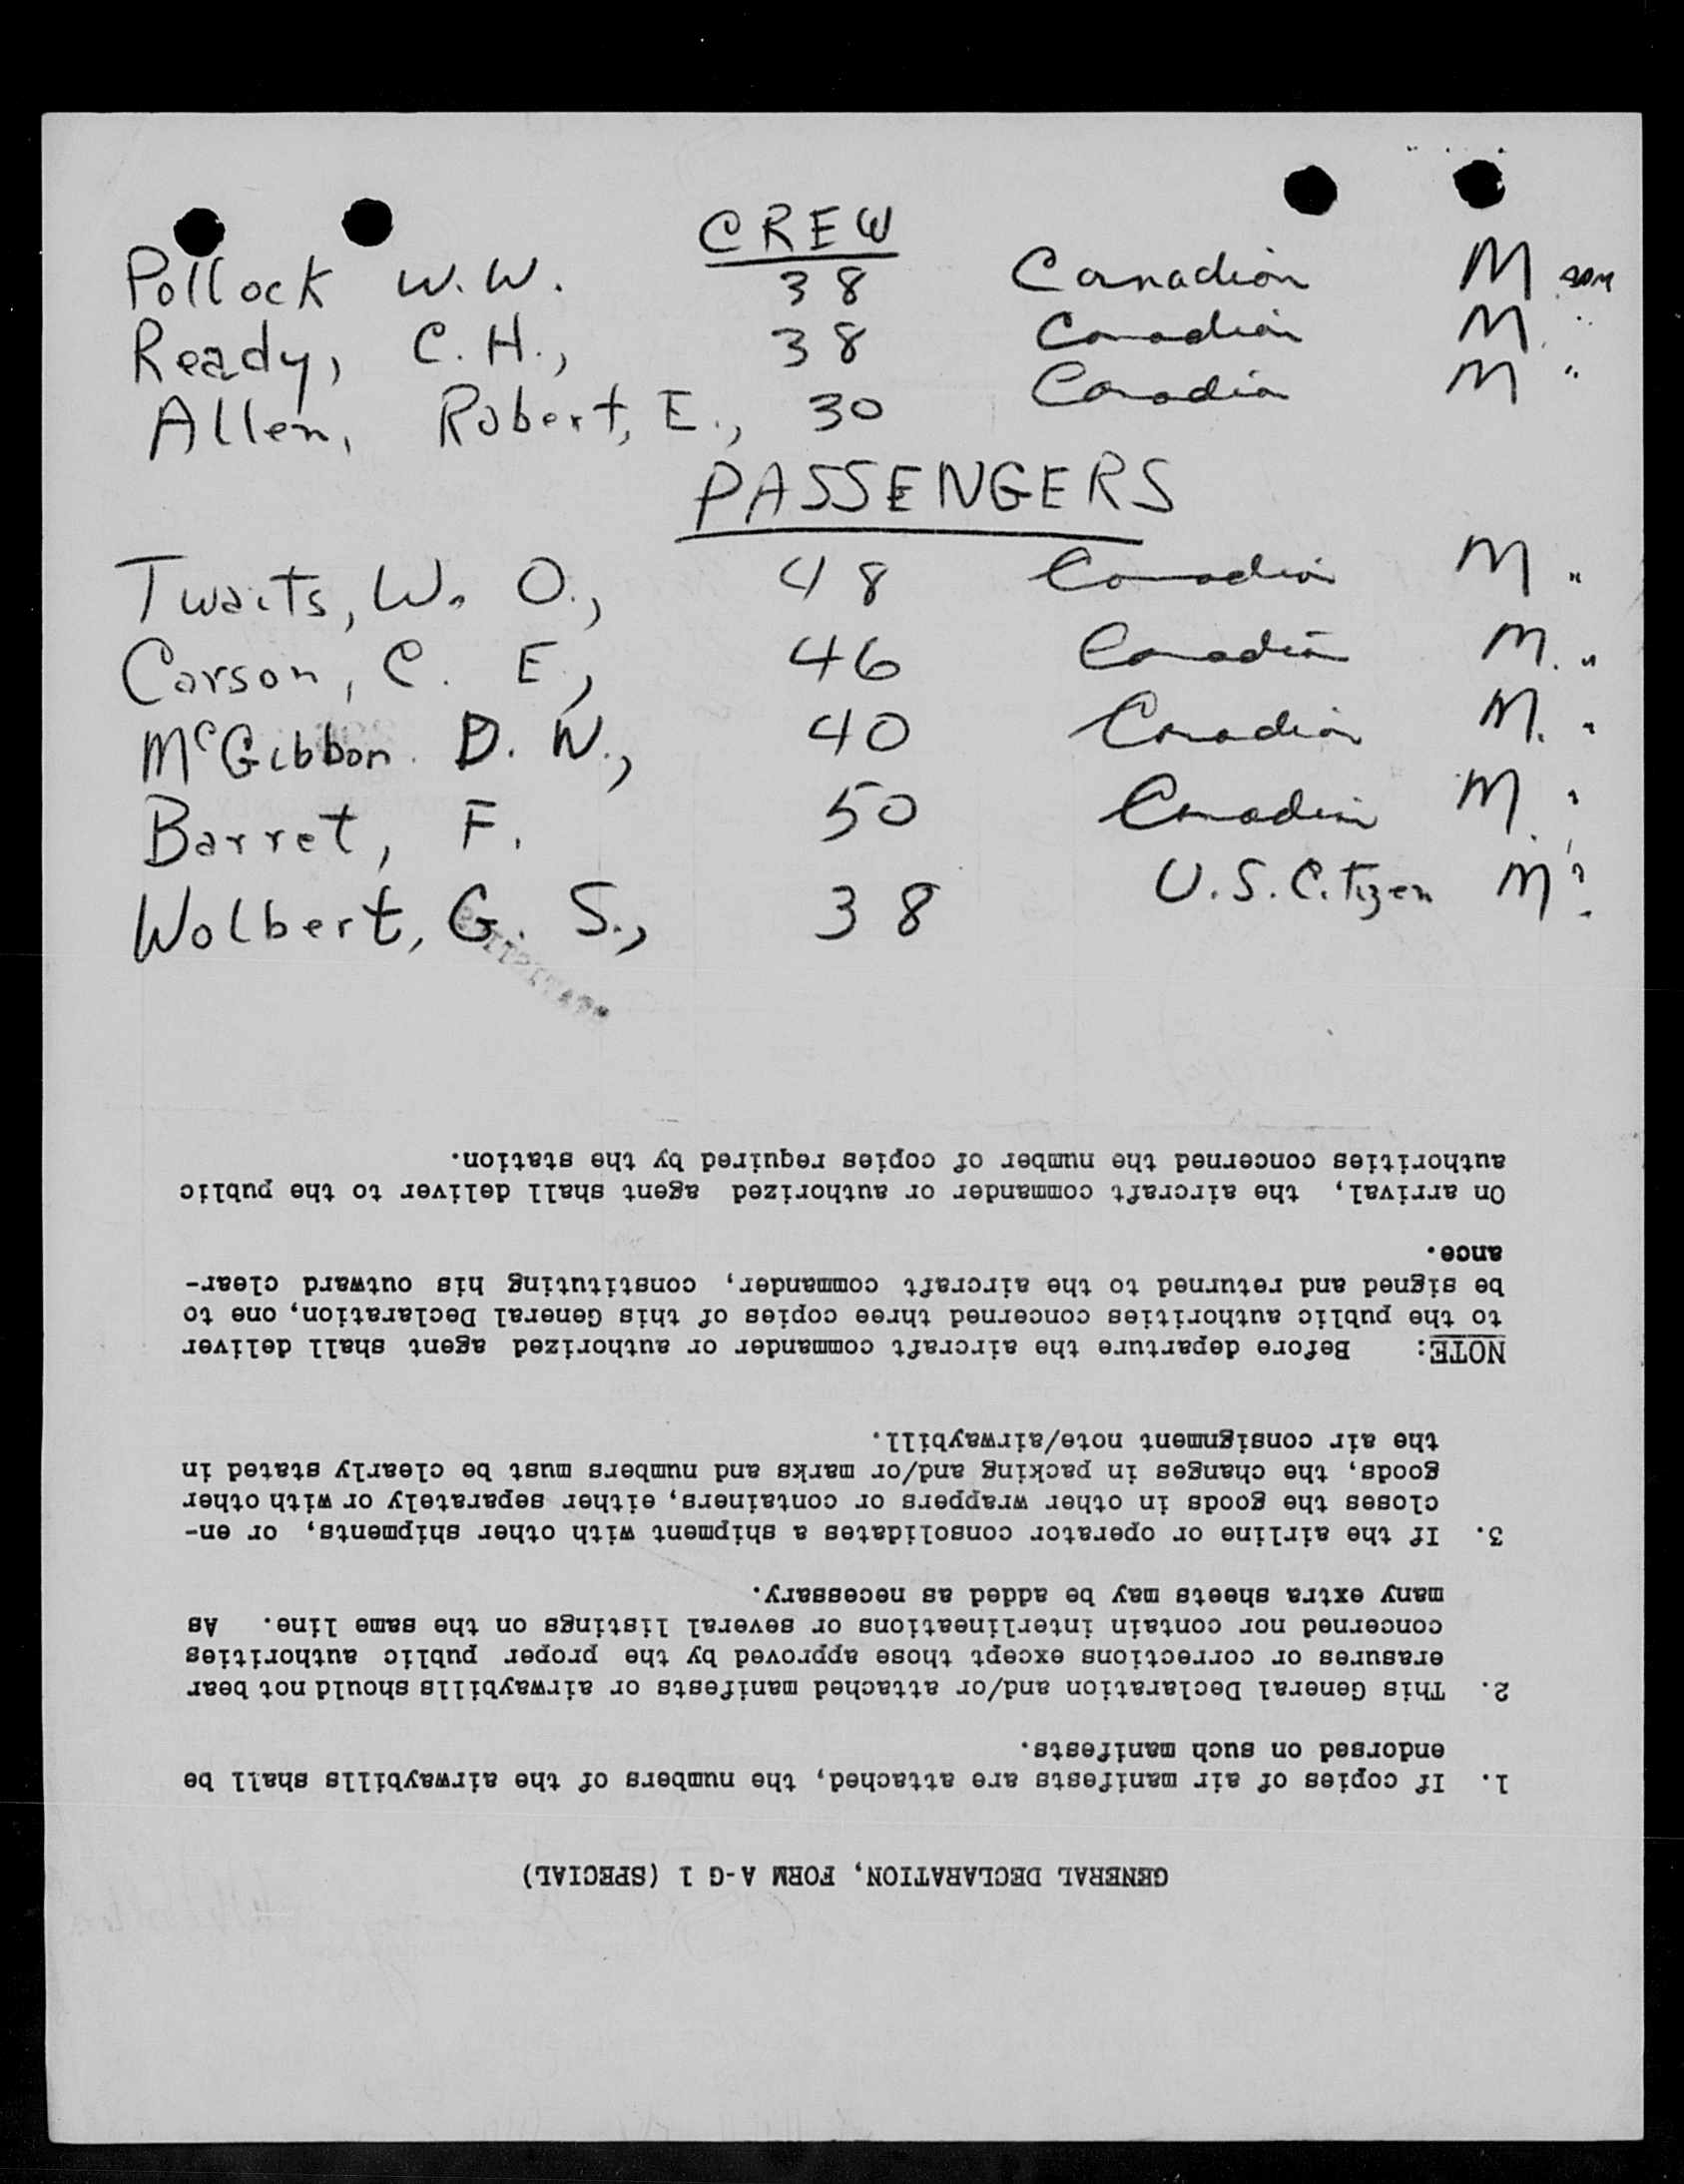 CREW
Pollock W.W. 38 Canadian M
Ready, C.H., 38 Canadian M "
Allen, Robert, E., 30 Canadian M "
PASSENGERS
Twaits, W. O., 48 Canadian M "
Carson, C. E., 46 Canadian M. "
McGibbon. D. W., 40 Canadian M. "
Barret, F. 50 Canadian M. "
Wolbert, G. S., 38 U.S. Citizen M "
GENERAL DECLARATION, FORM A-G 1 (SPECIAL)
1. If copies of air manifests are attached, the numbers of the airwaybills shall be
endorsed on such manifests.
2. This General Declaration and/or attached manifests or airwaybills should not bear
erasures or corrections except those approved by the proper public authorities
concerned nor contain interlineations or several listings on the same line. As
many extra sheets may be added as necessary.
3. If the airline or operator consolidates a shipment with other shipments, or en-
closes the goods in other wrappers or containers, either separately or with other
goods, the changes in packing and/or marks and numbers must be clearly stated in
the air consignment note/airwaybill.
NOTE: Before departure the aircraft commander or authorized agent shall deliver
to the public authorities concerned three copies of this General Declaration, one to
be signed and returned to the aircraft commander, constituting his outward clear-
ance.
On arrival, the aircraft commander or authorized agent shall deliver to the public
authorities concerned the number of copies required by the station.